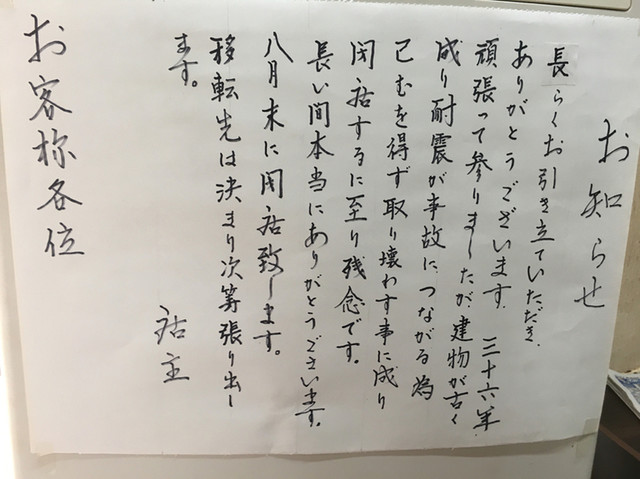 お知らせ
長らくお引き立ていただき.
ありがとうございます. 三十六年.
頑張って参りましたが建物が古く
成り耐震が事故につながる為
己むを得ず取り壊わす事に成り
閉店するに至り残念です。
長い間本当にありがとうございます。
八月末に閉店致します。
移転先は決まり次第張り出し
ます。
店主
お客様各位